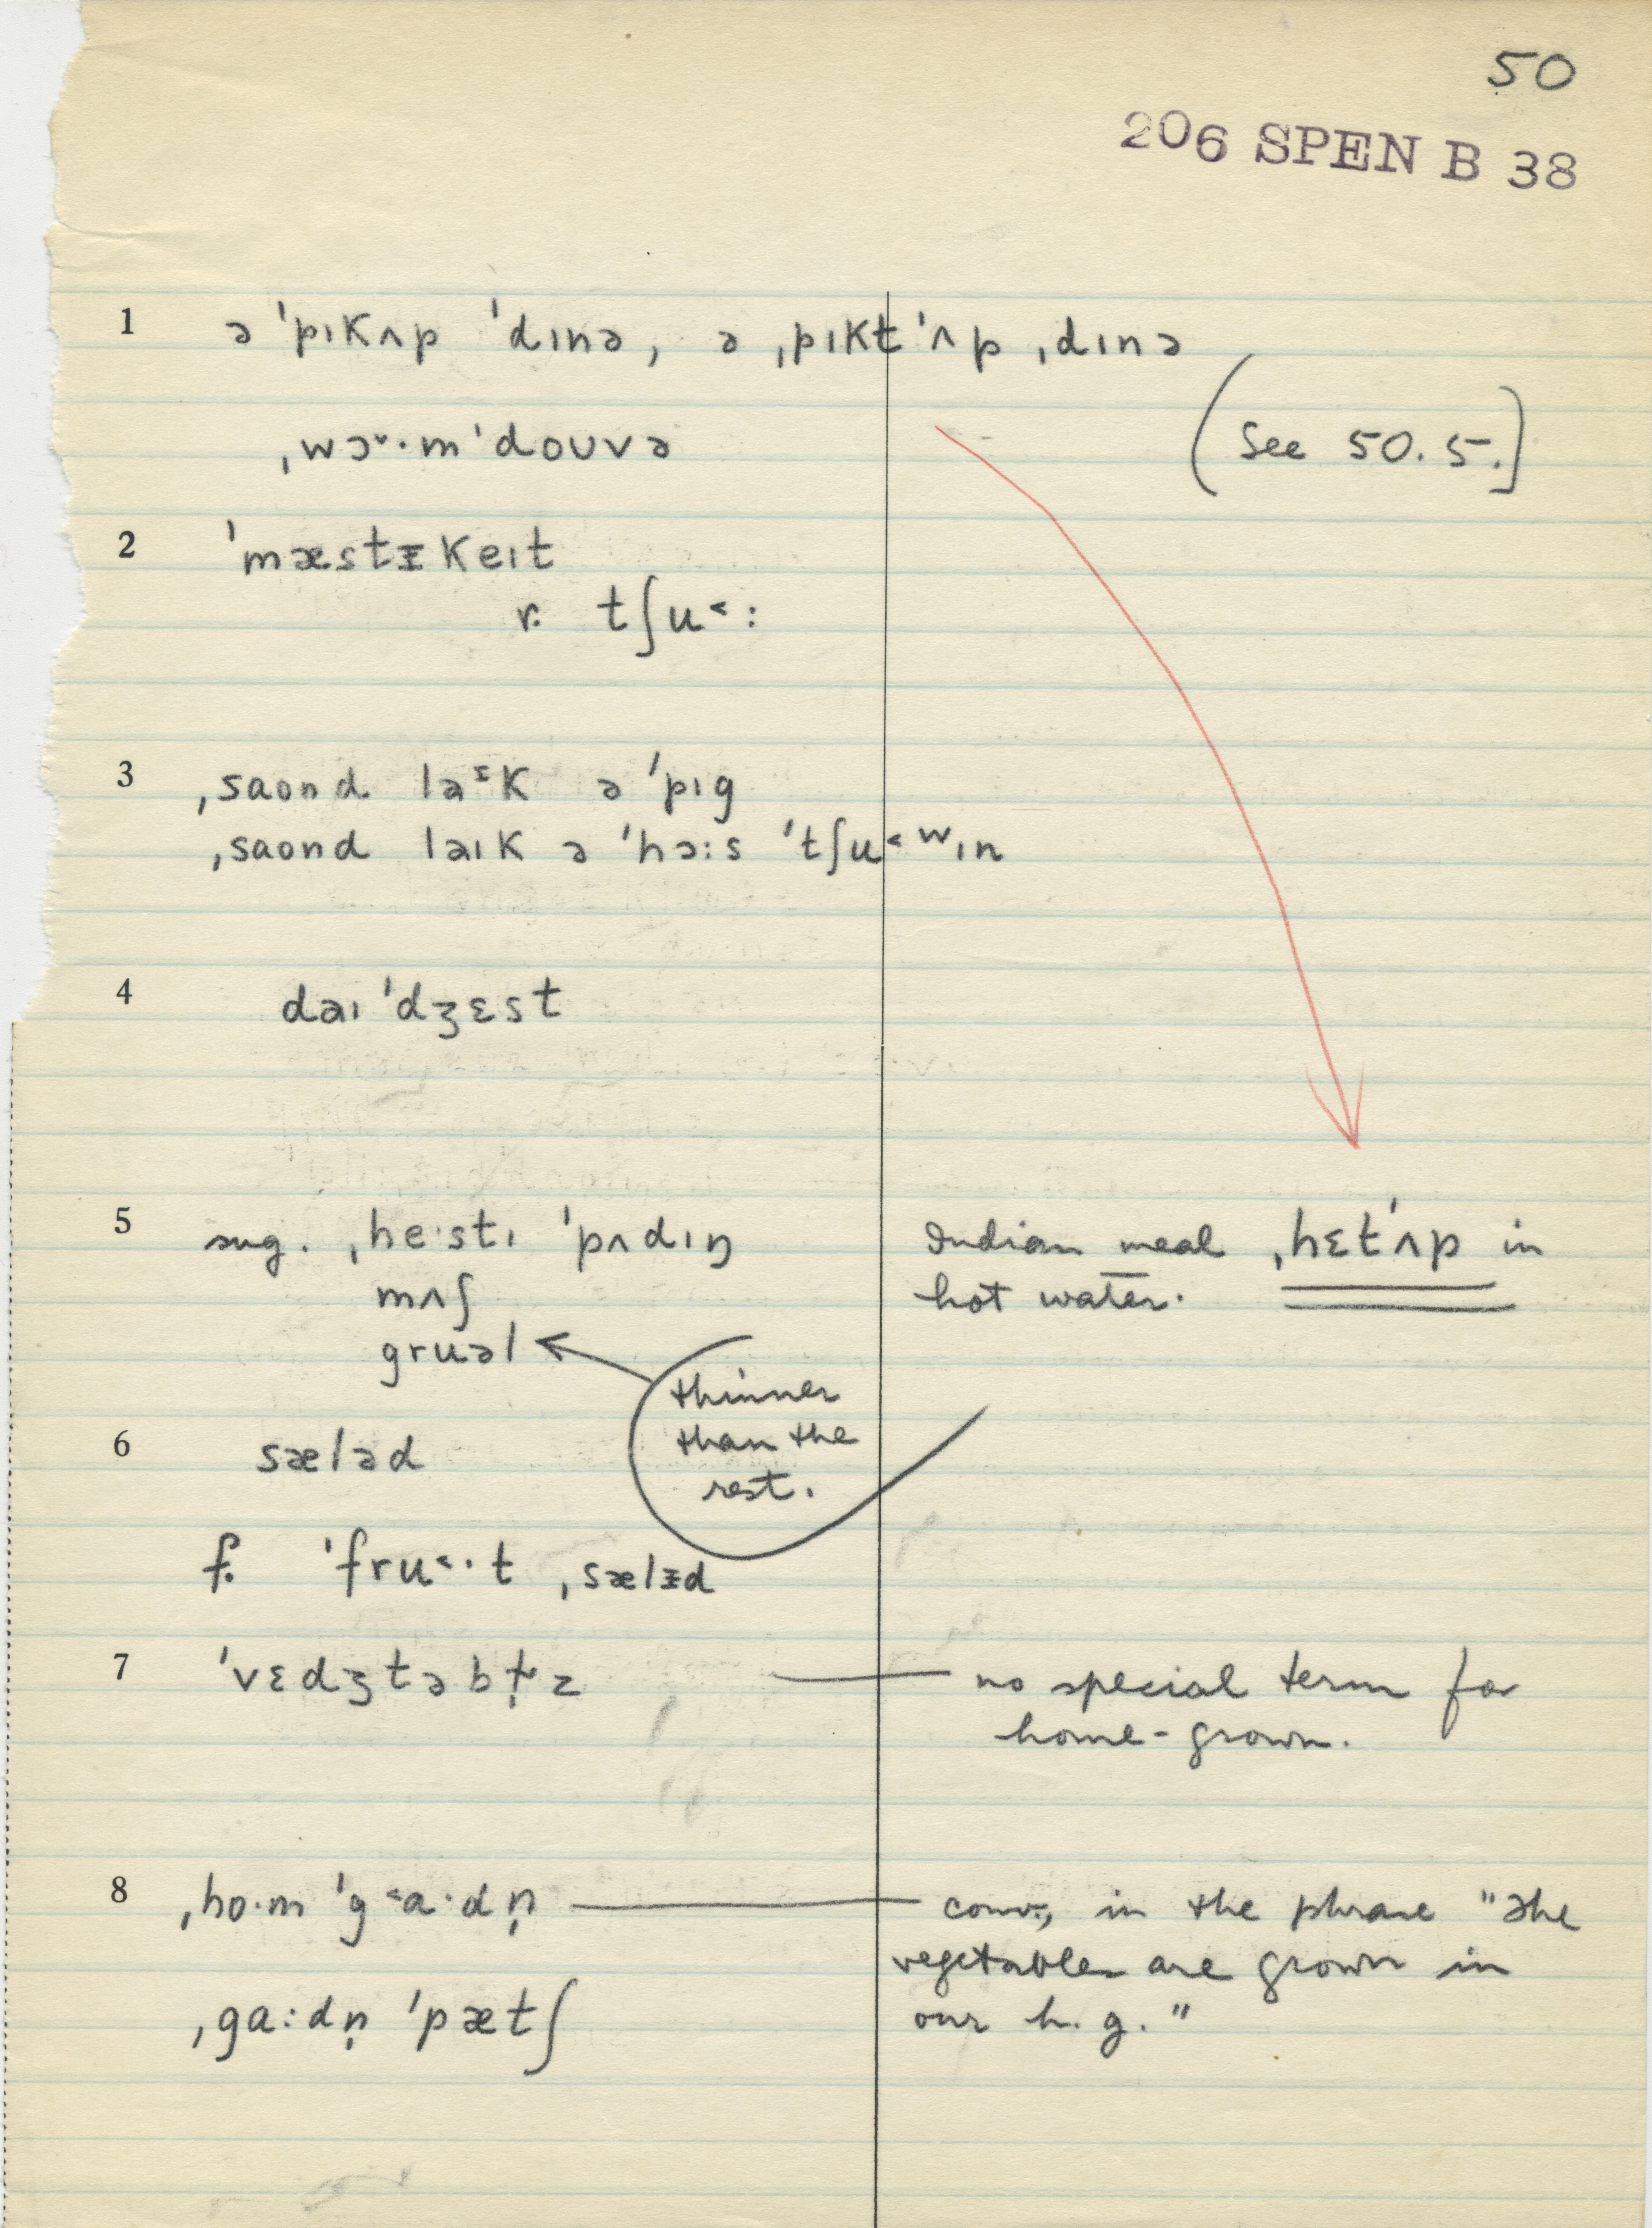 50
206 SPEN B 38
1 ə ˈpɪkʌp ˈdɪnə, ə ˌpɪktˈʌp ˌdɪnə
ˌwɔ˞·mˈdoʊvə
(See 50.5.]
2 ˈmæstᵻkeɪt
r. tʃu˂:
3 ˌsaond ləᵻk ə ˈpɪg
ˌsaond ləɪk ə ˈhɔ:s ˈtʃu˂ʷɪn
4 dəɪˈdʒɛst
5 sug. ˌhe·stɪ ˈpʌdɪŋ
mʌʃ
gruəl
Indian meal ˌhɛtˈʌp in
hot water.
thinner
than the
rest.
6 sæləd
f. ˈfru˂·t ˌsælᵻd
7 ˈvɛdʒtəbɫ̩z
no special term for
home-grown.
8 ˌho·m ˈg˂a·dn̩
conv., in the phrase "The
vegetables are grown in
our h. g."
ˌga:dn̩ ˈpætʃ